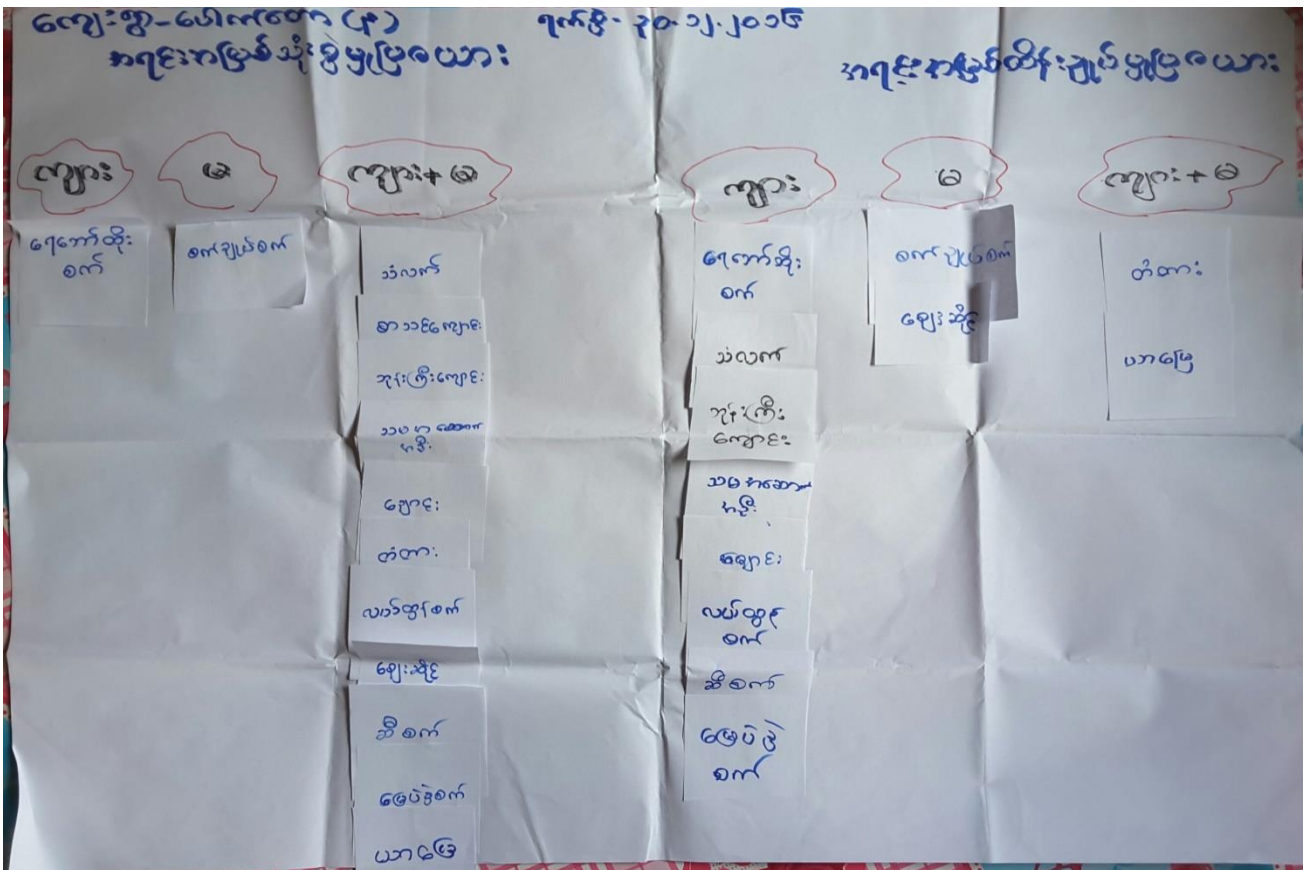 ကျေးရွာ-ပေါက်တော (မှ)
ရက်စွဲ- ၃၀.၁၂.၂၀၁၆
အရင်းအမြစ်သုံးစွဲမှုပြဇယား
အရင်းအမြစ်ထိန်းချုပ်မှုပြဇယား
ကျား
မ
ကျား+မ
ကျား
မ
ကျား+မ
ရေဘော်ထိုး
စက်
စက်ချုပ်စက်
သံလက်
စာသင်ကျောင်း
ဘုန်းကြီးကျောင်း
သမအဆောက်
အဦး
ချောင်း
တံတား
လယ်ထွန်စက်
ဈေးဆိုင်
ဆီစက်
မြေပဲခွဲစက်
ယာမြေ
ရေဘော်ထိုး
စက်
သံလက်
ဘုန်းကြီး
ကျောင်း
သမအဆောက်
အဦး
ချောင်း
လယ်ထွန်
စက်
ဆီစက်
မြေပဲခွဲ
စက်
စက်ချုပ်စက်
ဈေးဆိုင်
တံတား
ယာမြေ